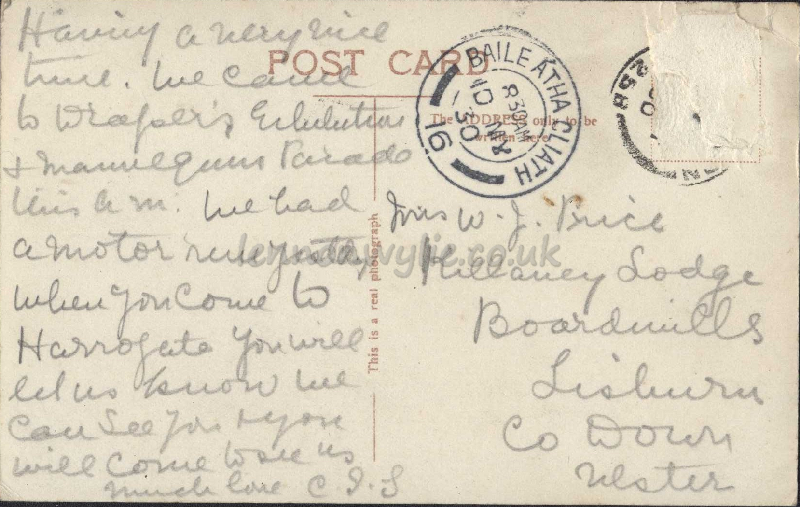 Having a very nice
time. We came
to Draper's Exhibition
& Mannequin Parade
this a.m. We had
a motor run yesterday
when you come to
Harrogate you will
let us know we
can see you & you
will come to see us
much love C.
POST CARD
The ADDRESS only to be
written here.
BAILE ÁTHA CLIATH
8 30 AM
10
30
16
This is a real photograph
Mrs W. J. Price
Killaney Lodge
Boardmills
Lisburn
Co Down
Ulster
lennonwylie.co.uk